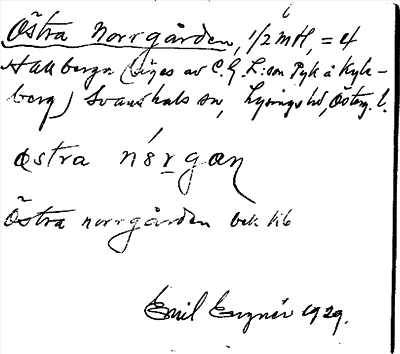 Östra Norrgården, 1/2 mtl, = 4
Hallberga (äges av C. G. L:son Pyk å Kyle-
berg) Svanhals sn, Lysings hd, Österg. l.
østra nørgaɳ
Östra norrgården bek kb
Emil 1929.